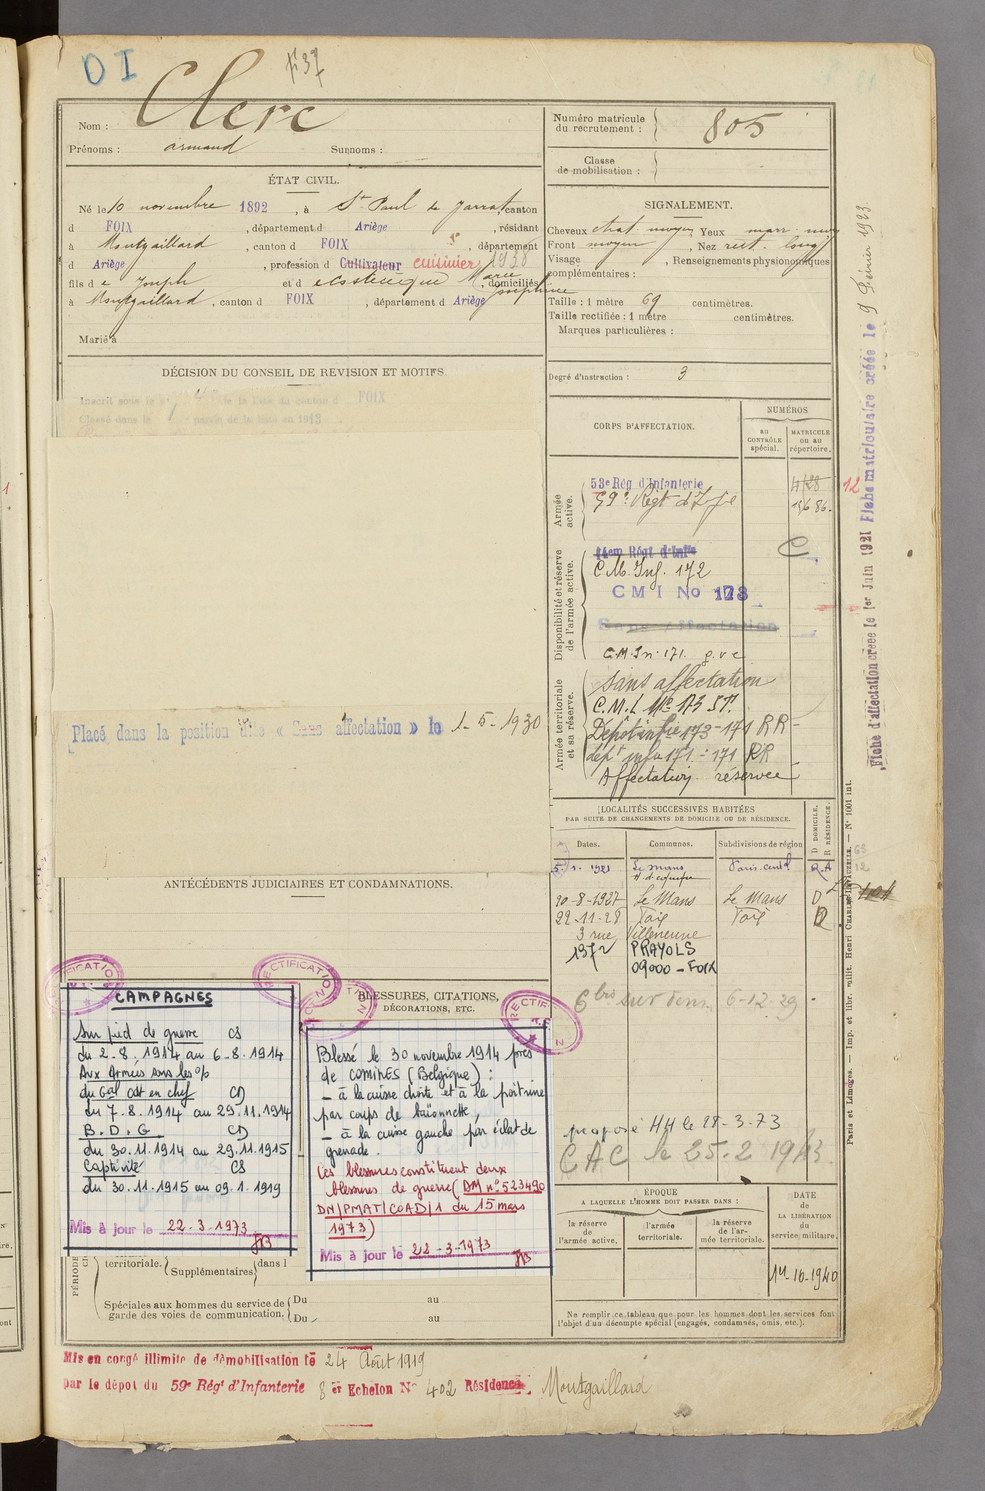 DI
F 37
Nom : Clerc
Prénoms : armand Surnoms :
Numéro matricule
du recrutement : 805
Classe
de mobilisation :
ÉTAT CIVIL.
Né le 10 novembre 1892, à St Paul de Jarrat, canton
d FOIX, département d Ariège, résidant
à Montgaillard, canton d FOIX, département
d Ariège, profession d Cultivateur cuisinier 1938
fils de Joseph et d Marie Josephine, domiciliés
à Montgaillard, canton d FOIX, département d Ariège
Marié à
SIGNALEMENT.
Cheveux chat. moyen Yeux marr.
Front moyen, Nez rect. long
Visage, Renseignements physionomiques
complémentaires :
Taille : 1 mètre 69 centimètres.
Taille rectifiée : 1 mètre centimètres.
Marques particulières :
Degré d'instruction : 3
DÉCISION DU CONSEIL DE REVISION ET MOTIFS.
Inscrit sous le n° 4 de la liste du canton d FOIX
Classé dans la 1 partie de la liste en 1913
Placé dans la position dite « Sans affectation » le 1-5-1930
CORPS D'AFFECTATION.
NUMÉROS
au
CONTRÔLE
spécial.
MATRICULE
ou au
répertoire.
Armée
active.
53e Rég. d'Infanterie
59e Régt d'Infie
Disponibilité et réserve
de l'armée active.
14em Régt d'Infie
C.M. Inf. 172
C M I No 173
Sans Affectation
C.M.In. 171. g.v.c
Armée territoriale
et sa réserve.
Sans affectation
C.M.I. No 173 ST.
Dépot infie 173-171 RR
dépt infie 171 - 171 RR
Affectation réservée
12
Fiche d'affectation créée le 1er Juin 1921 Fiche matriculaire créée le 9 Février 1923
LOCALITÉS SUCCESSIVES HABITÉES
PAR SUITE DE CHANGEMENTS DE DOMICILE OU DE RÉSIDENCE.
Dates. Communes. Subdivisions de région
D DOMICILE,
R RÉSIDENCE.
5-1-1921 Le Mans Paris. R.A
20-8-1927 Le Mans Le Mans D
22-11-28 Foix Foix D
3 rue Villeneuve
1972 PRAYOLS
09000 - FOIX
6-12.29
proposé HH le 28-3-73
CAC le 25.2 1943
ANTÉCÉDENTS JUDICIAIRES ET CONDAMNATIONS.
RECTIFICATION
RECTIFICATION
CAMPAGNES
Sur pied de guerre CS
du 2-8.1914 au 6-8.1914
Aux Armées sous les o/o
du Gal Cdt en chef CD
du 7-8.1914 au 29.11.1914
B.D.G CD
du 30.11.1914 au 29.11.1915
Captivité CS
du 30.11.1915 au 09.1.1919
Mis à jour le 22-3-1973
BLESSURES, CITATIONS,
DÉCORATIONS, ETC.
Blessé le 30 novembre 1914 près
de COMINES (Belgique) :
- à la cuisse droite et à la poitrine
par coups de baïonnette,
- à la cuisse gauche par éclat de
grenade.
Ces blessures constituent deux
blessures de guerre (DM n° 523490
DN/PMAT/COAD/1 du 15 mars
1973)
Mis à jour le 22-3-1973
ÉPOQUE
A LAQUELLE L'HOMME DOIT PASSER DANS :
la réserve
de l'armée active.
l'armée
territoriale.
la réserve
de l'ar-
mée territoriale.
DATE
de
LA LIBÉRATION
du
service militaire.
14-10-1940
territoriale. (Supplémentaires) dans l
Spéciales aux hommes du service de
garde des voies de communication.
Du au
Du au
Ne remplir ce tableau que pour les hommes dont les services font
l'objet d'un décompte spécial (engagés, condamnés, omis, etc.).
Paris et Limoges. — Imp. et libr. milit. Henri CHARLES-LAVAUZELLE. — N° 1001 int.
Mis en congé illimité de démobilisation le 24 Août 1919
par le dépot du 59e Régt d'Infanterie 8 er Echelon N° 402 Résidence Montgaillard